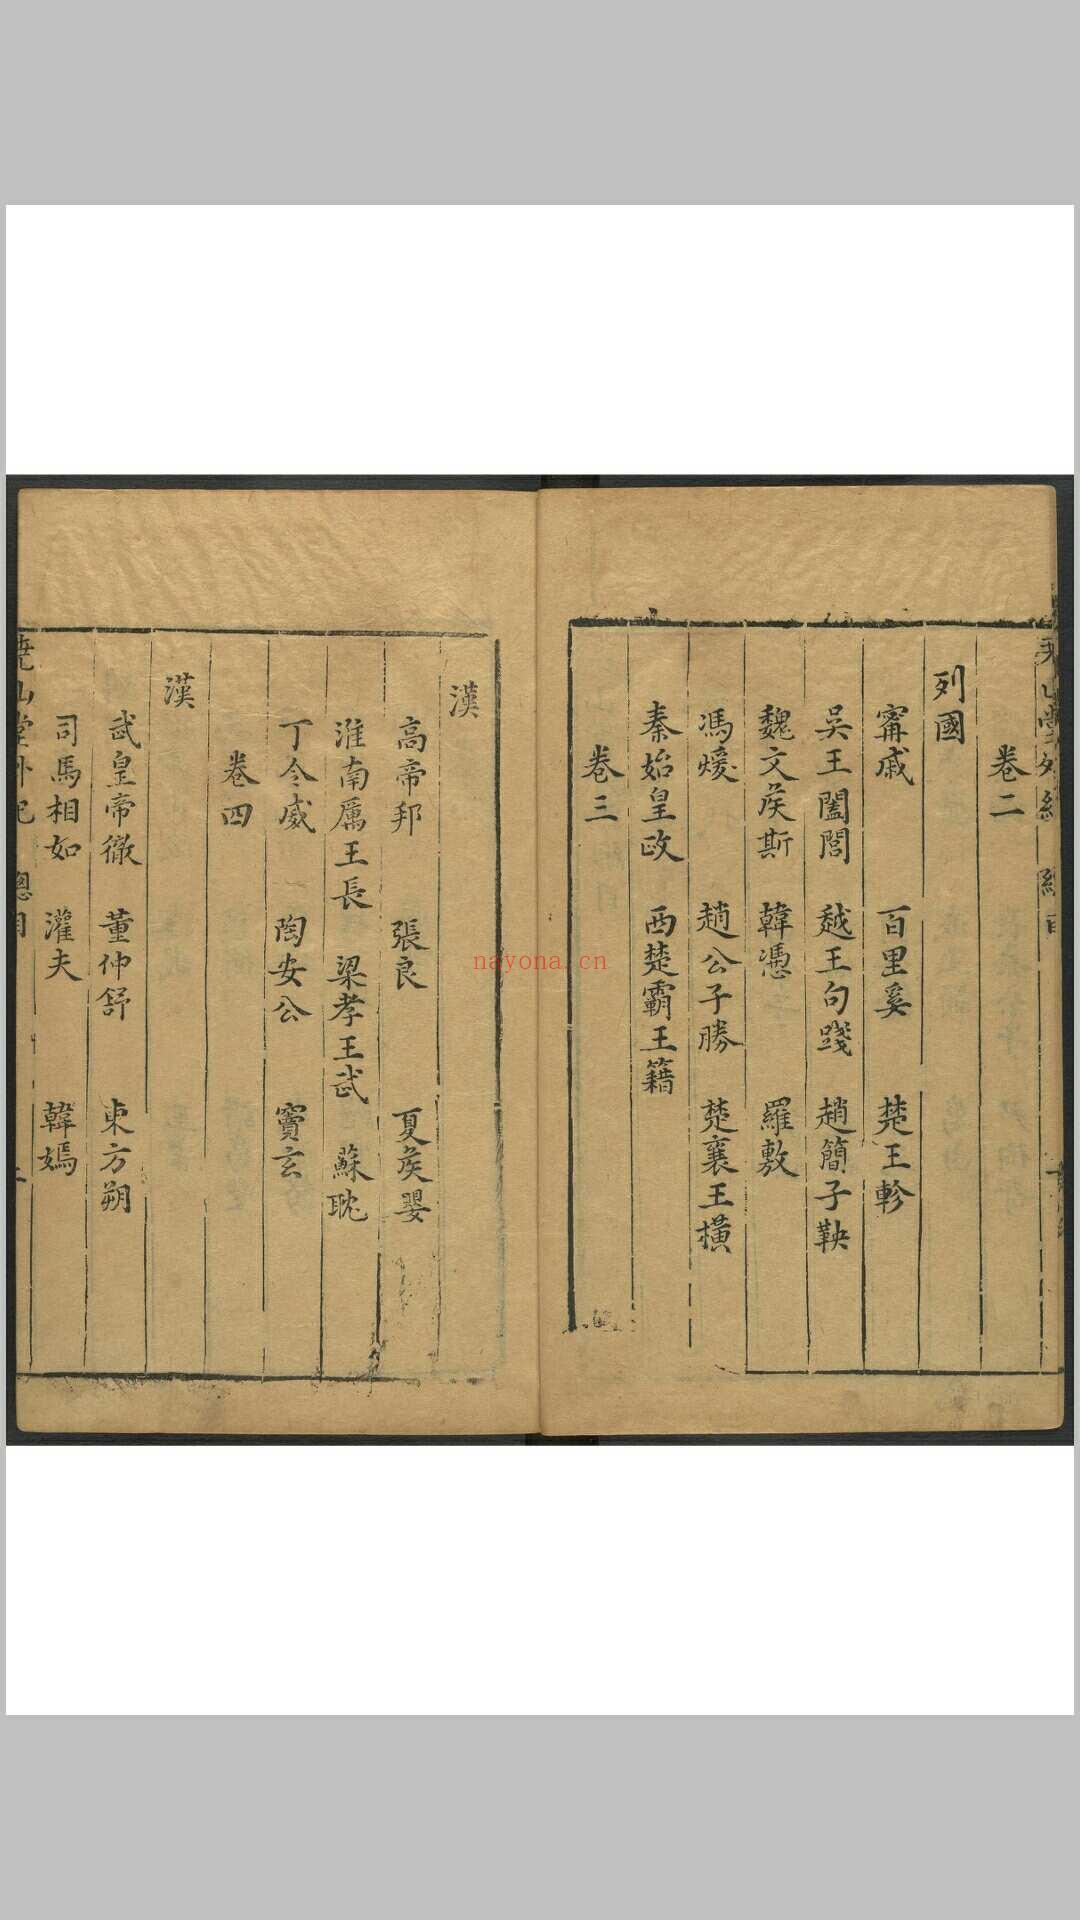 卷二
列國
甯戚 百里奚 楚王軫
吳王闔閭 越王句踐 趙簡子鞅
魏文侯斯 韓憑 羅敷
馮煖 趙公子勝 楚襄王橫
秦始皇政 西楚霸王籍
卷三
漢
高帝邦 張良 夏侯嬰
淮南厲王長 梁孝王武 蘇耽
丁令威 陶安公 竇玄
卷四
漢
武皇帝徹 董仲舒 東方朔
司馬相如 灌夫 韓嫣
堯山堂外紀 總目
nayona.cn